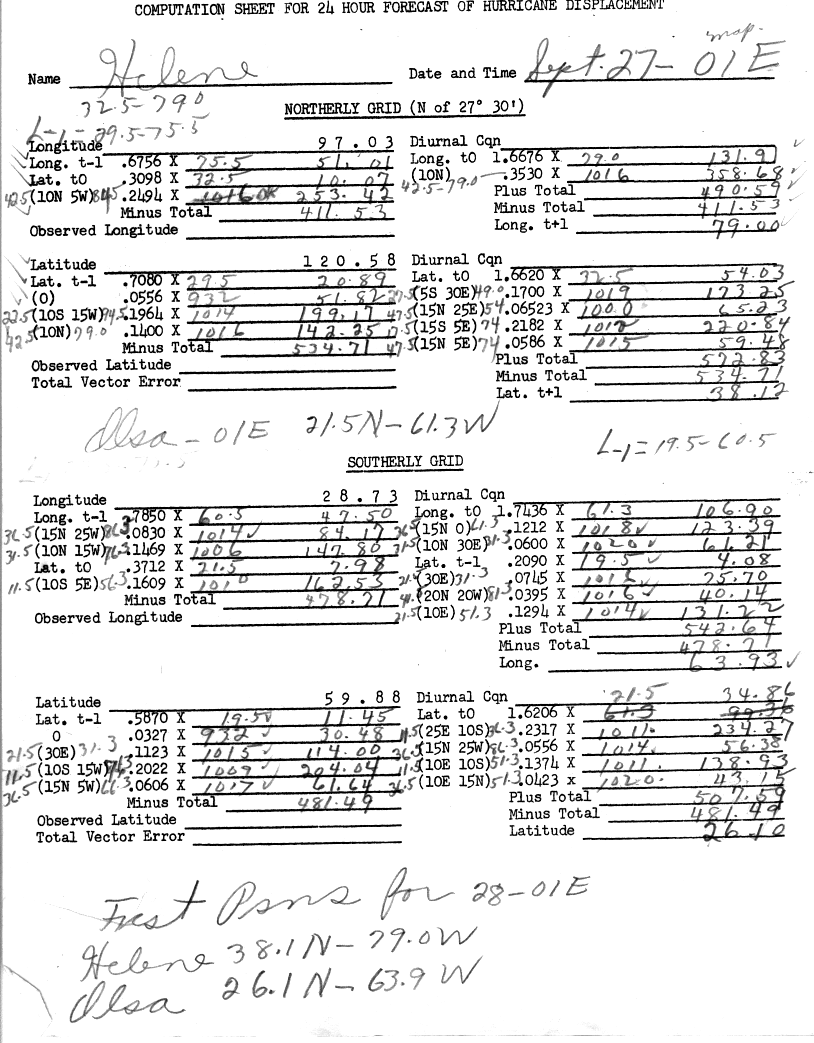 COMPUTATION SHEET FOR 24 HOUR FORECAST OF HURRICANE DISPLACEMENT
map.
Name Helene Date and Time Sept. 27 - 01E
32.5 - 79.0
NORTHERLY GRID (N of 27° 30')
L-1 = 29.5 - 75.5
Longitude 97.03 Diurnal Cqn
Long. t-1 .6756 X 75.5 51.01 Long. t0 1.6676 X 79.0 131.91
Lat. t0 .3098 X 32.5 10.07 (10N) .3530 X 1016 358.68
42.5 (10N 5W) 84.5 .2494 X 1016 OK 253.42 42.5-79.0 Plus Total 490.59
Minus Total 411.53 Minus Total 411.53
Observed Longitude Long. t+1 79.00
Latitude 120.58 Diurnal Cqn
Lat. t-1 .7080 X 29.5 20.89 Lat. t0 1.6620 X 32.5 54.03
(0) .0556 X 932 51.82 27.5 (5S 30E) 49.0 .1700 X 1019 173.25
22.5 (10S 15W) 94.5 .1964 X 1014 199.17 47.5 (15N 25E) 54 .06523 X 1000 65.23
42.5 (10N) 79.0 .1400 X 1016 142.25 17.5 (15S 5E) 74 .2182 X 1012 220.84
Minus Total 534.71 47.5 (15N 5E) 74 .0586 X 1015 59.48
Observed Latitude Plus Total 572.83
Total Vector Error Minus Total 534.71
Lat. t+1 38.12
Ilsa - 01E 21.5N - 61.3W
L-1 = 19.5 - 60.5
SOUTHERLY GRID
Longitude 28.73 Diurnal Cqn
Long. t-1 .7850 X 60.5 47.50 Long. t0 1.7436 X 61.3 106.90
36.5 (15N 25W) 86.3 .0830 X 1014 84.17 36.5 (15N 0) 61.3 .1212 X 1018 123.39
31.5 (10N 15W) 76.3 .1469 X 1006 147.80 31.5 (10N 30E) 31.3 .0600 X 1020 61.21
Lat. t0 .3712 X 21.5 7.98 Lat. t-1 .2090 X 19.5 4.08
11.5 (10S 5E) 56.3 .1609 X 1010 162.53 21.5 (30E) 31.3 .0745 X 1015 75.70
Minus Total 478.71 41.5 (20N 20W) 81.3 .0395 X 1016 40.14
Observed Longitude 21.5 (10E) 51.3 .1294 X 1014 131.22
Plus Total 542.64
Minus Total 478.71
Long. 63.93
Latitude 59.88 Diurnal Cqn 21.5 34.86
Lat. t-1 .5870 X 19.5 11.45 Lat. t0 1.6206 X 61.3
0 .0327 X 932 30.48 11.5 (25E 10S) 36.3 .2317 X 1011. 234.27
21.5 (30E) 31.3 .1123 X 1015 114.00 36.5 (15N 25W) 86.3 .0556 X 1014. 56.38
11.5 (10S 15W) 76.3 .2022 X 1009 204.04 11.5 (10E 10S) 51.3 .1374 X 1011. 138.93
36.5 (15N 5W) 66.3 .0606 X 1017 61.64 36.5 (10E 15N) 51.3 .0423 x 1020. 43.15
Minus Total 481.49 Plus Total 507.59
Observed Latitude Minus Total 481.49
Total Vector Error Latitude 26.10
Fcst Psns for 28-01E
Helene 38.1N - 79.0W
Ilsa 26.1N - 63.9W